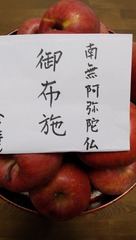 南無阿弥陀仏
御布施